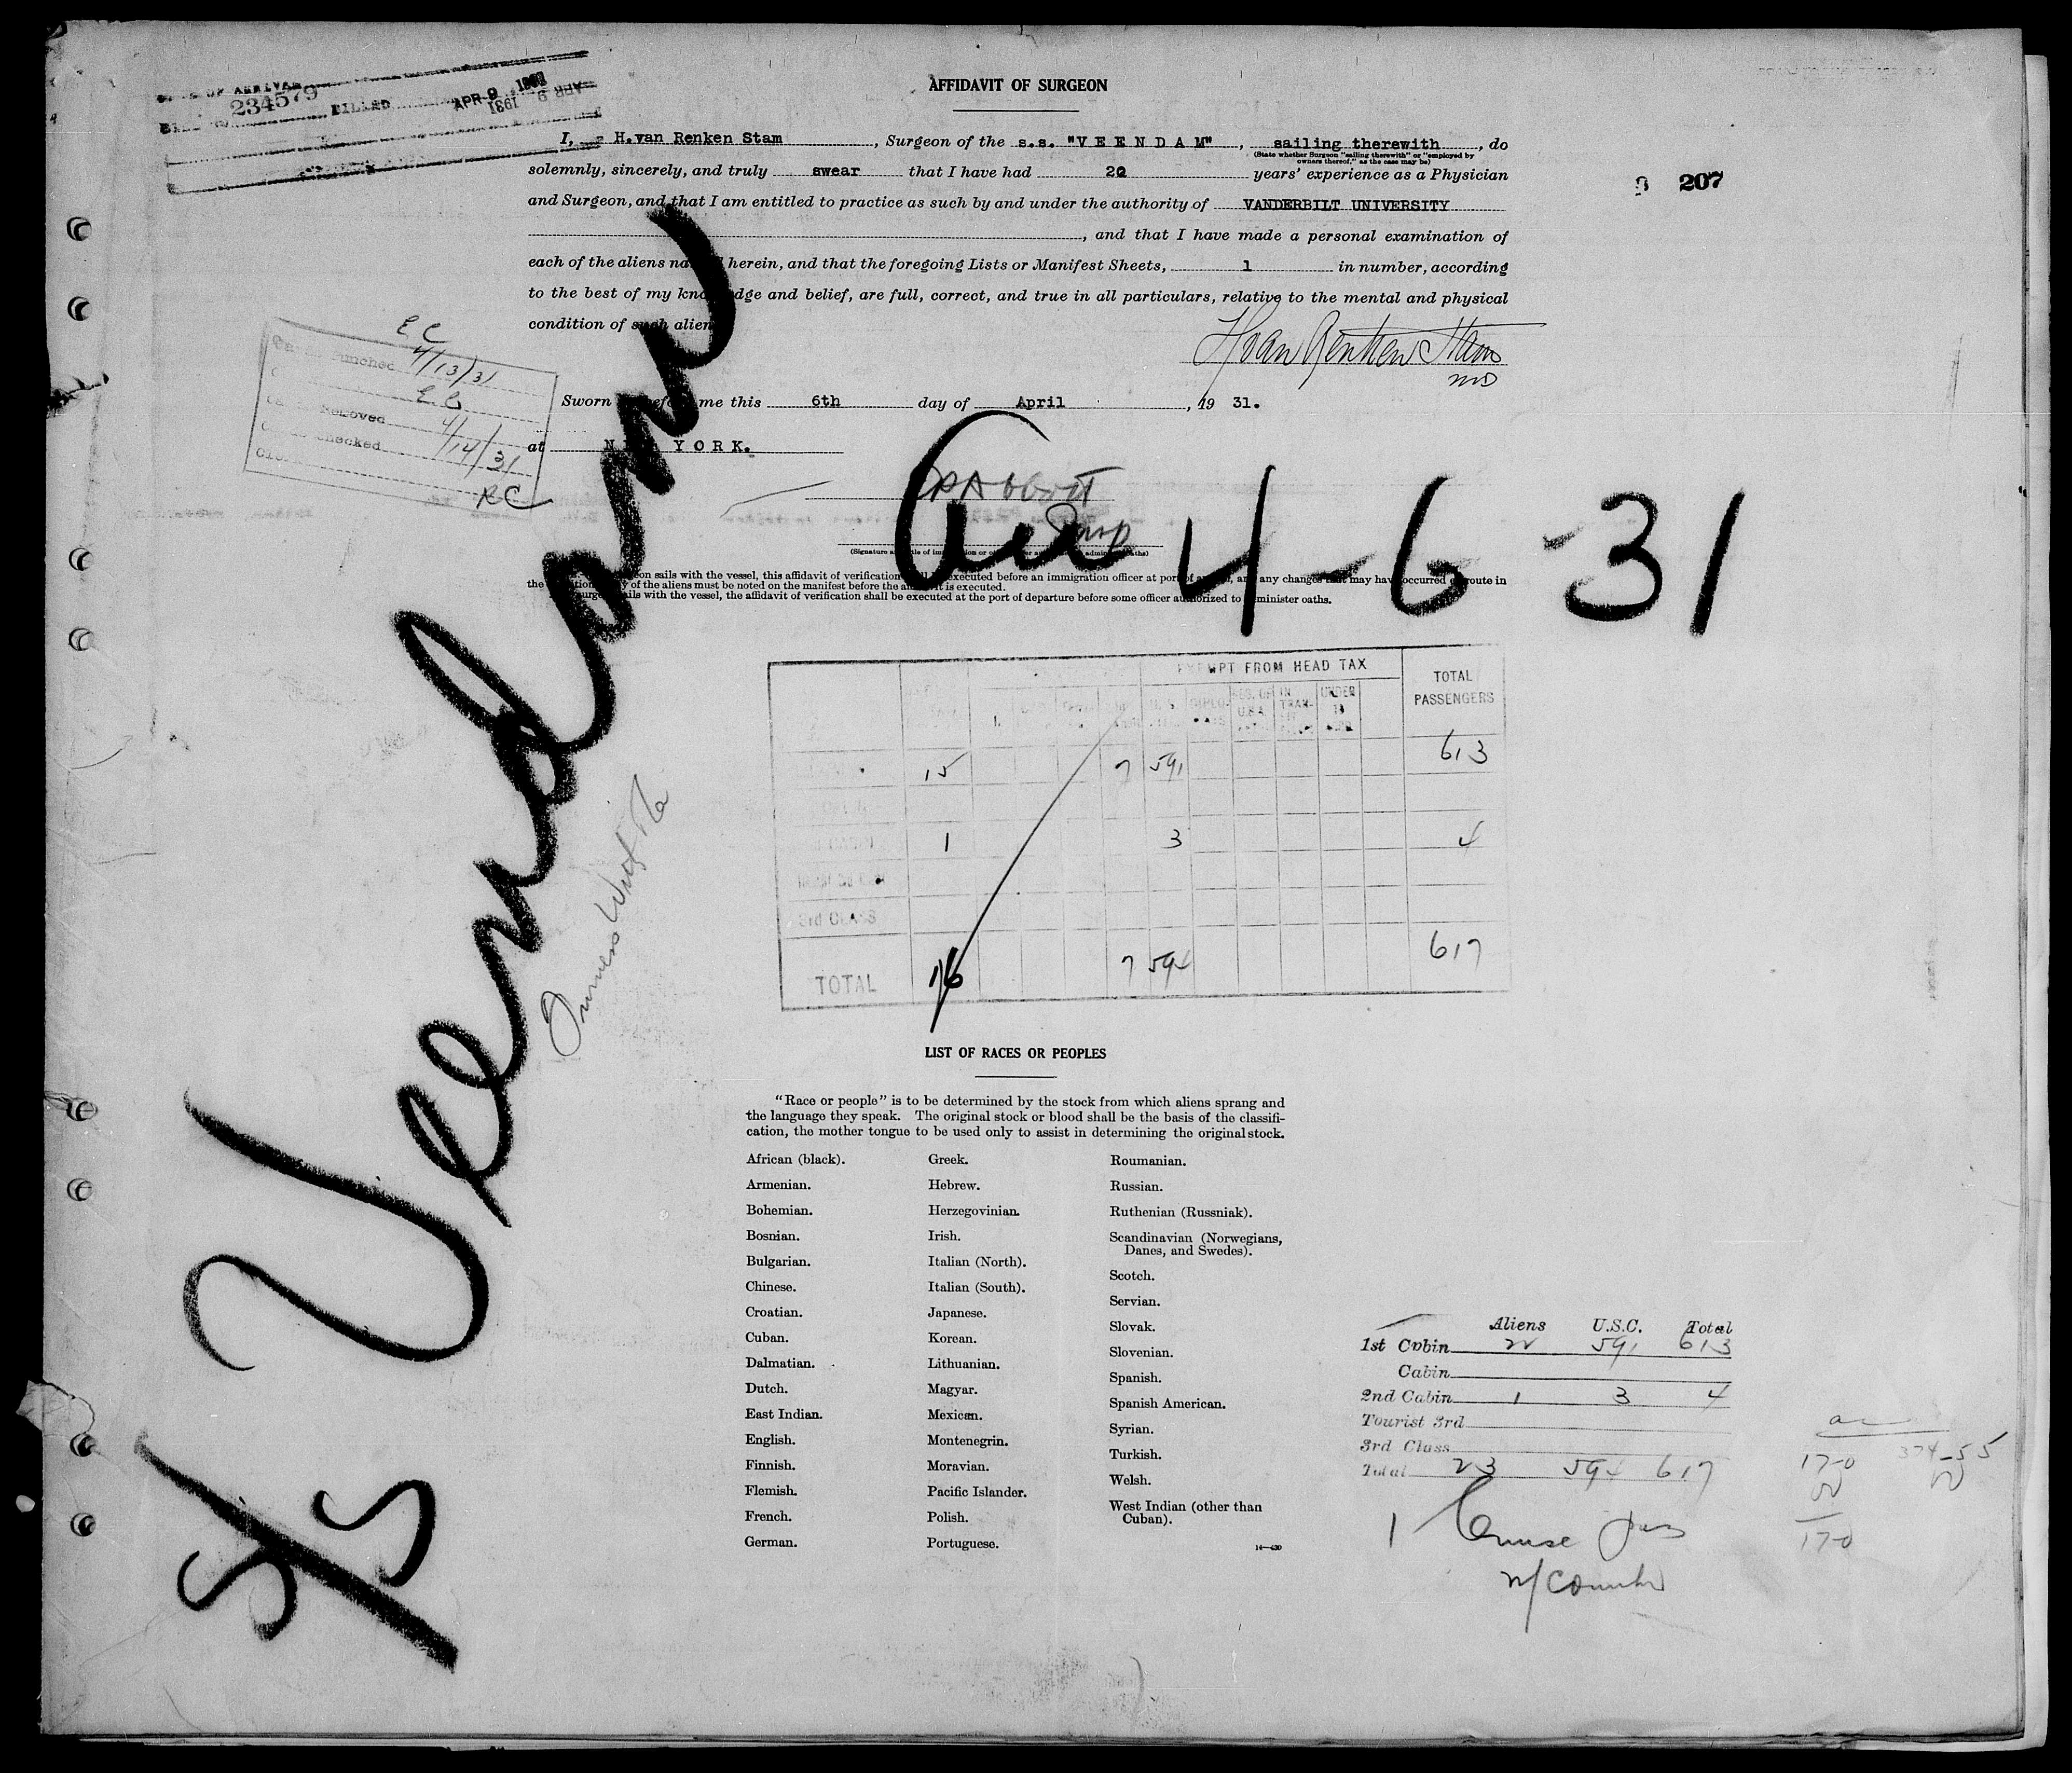 AFFIDAVIT OF SURGEON
234579 FILED APR 9 1931
I, H.van Renken Stam, Surgeon of the s.s. "V E E N D A M", sailing therewith, do
(State whether Surgeon "sailing therewith" or "employed by
owners thereof," as the case may be)
solemnly, sincerely, and truly swear that I have had 20 years' experience as a Physician
9 207
and Surgeon, and that I am entitled to practice as such by and under the authority of VANDERBILT UNIVERSITY
, and that I have made a personal examination of
each of the aliens herein, and that the foregoing Lists or Manifest Sheets, 1 in number, according
to the best of my and belief, are full, correct, and true in all particulars, relative to the mental and physical
condition of such alien
H van Renken Stam
MD
EC
Punched 4/13/31
E.C.
Removed
Checked 4/14/31
RC
Sworn me this 6th day of April, 19 31.
at YORK.
Arr 4-6-31
S/S Veendam
sails with the vessel, this affidavit of verification executed before an immigration officer at port of any changes may have occurred in
the of the aliens must be noted on the manifest before the is executed.
with the vessel, the affidavit of verification shall be executed at the port of departure before some officer authorized to minister oaths.
EXEMPT FROM HEAD TAX
TOTAL
PASSENGERS
UNDER
15 7 591 613
1 3 4
3rd CLASS
TOTAL 16 7 594 617
LIST OF RACES OR PEOPLES
"Race or people" is to be determined by the stock from which aliens sprang and
the language they speak. The original stock or blood shall be the basis of the classifi-
cation, the mother tongue to be used only to assist in determining the original stock.
African (black).
Armenian.
Bohemian.
Bosnian.
Bulgarian.
Chinese.
Croatian.
Cuban.
Dalmatian.
Dutch.
East Indian.
English.
Finnish.
Flemish.
French.
German.
Greek.
Hebrew.
Herzegovinian.
Irish.
Italian (North).
Italian (South).
Japanese.
Korean.
Lithuanian.
Magyar.
Mexican.
Montenegrin.
Moravian.
Pacific Islander.
Polish.
Portuguese.
Roumanian.
Russian.
Ruthenian (Russniak).
Scandinavian (Norwegians,
Danes, and Swedes).
Scotch.
Servian.
Slovak.
Slovenian.
Spanish.
Spanish American.
Syrian.
Turkish.
Welsh.
West Indian (other than
Cuban).
Aliens U.S.C. Total
1st Cabin 22 591 613
Cabin
2nd Cabin 1 3 4
Tourist 3rd
3rd Class
Total 23 594 617
1 Cruise pass